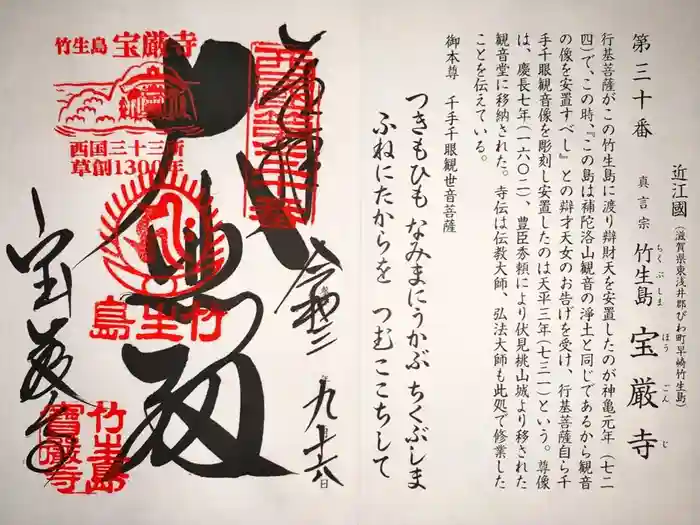 近江國（滋賀県東浅井郡びわ町早崎竹生島）
第三十番　真言宗　竹生島　宝厳寺
ちくぶしま　ほうごんじ
行基菩薩がこの竹生島に渡り辯財天を安置したのが神亀元年（七二
四）で、この時、『この島は補陀洛山観音の浄土と同じであるから観音
の像を安置すべし』との辯才天女のお告げを受け、行基菩薩自ら千
手千眼観音像を彫刻し安置したのは天平三年（七三一）という。尊像
は、慶長七年（一六〇二）、豊臣秀頼により伏見桃山城より移された
観音堂に移納された。寺伝は伝教大師、弘法大師も此処で修業した
ことを伝えている。
御本尊　千手千眼観世音菩薩
つきもひも　なみまにうかぶ　ちくぶしま
ふねにたからを　つむここちして
令和二　九月十六日
竹生島　宝厳寺
西国三十三所
草創1300年
竹生島
竹生島
寶厳寺